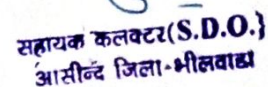 सहायक कलक्टर(S.D.O.)
आसीन्द जिला-भीलवाडा